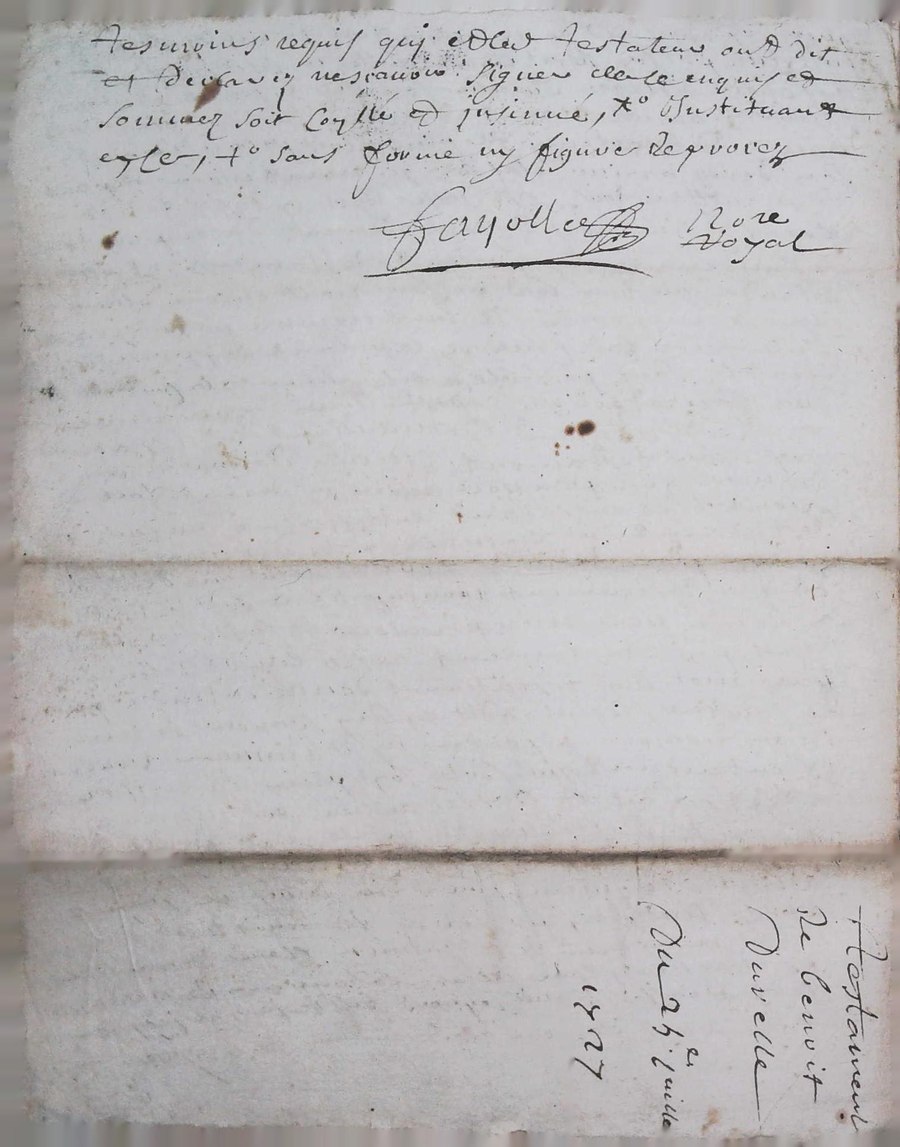 tesmoins requis quj et led testateur ont dit
et declarez ne scavoir signer de ce enquis et
sommez soit coñllé et jnsinué, Xo Instituant
, to sans forme ny figure de procez
Fayolle Nore
Royal
Testament
de benoit
Duvelle
Du 25e juille
1727